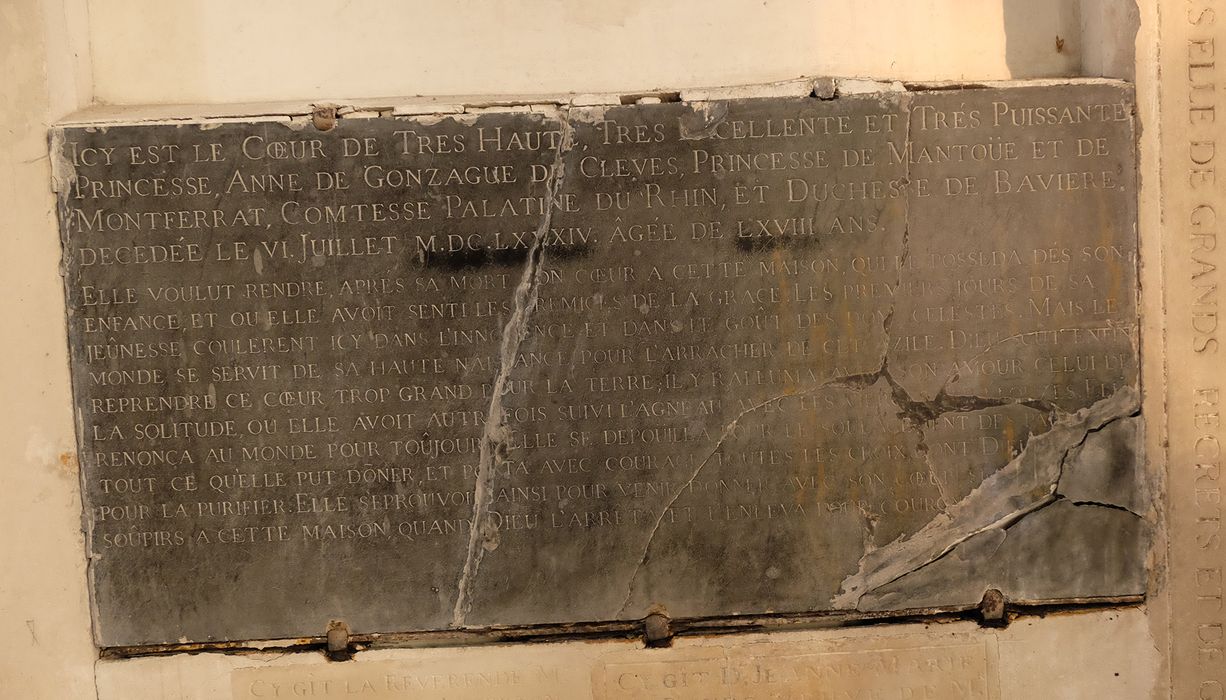 ICY EST LE CŒUR DE TRES HAUTE, TRES EXCELLENTE ET TRÉS PUISSANTE
PRINCESSE, ANNE DE GONZAGUE DE CLEVES, PRINCESSE DE MANTOÜE ET DE
MONTFERRAT, COMTESSE PALATINE DU RHIN, ET DUCHESSE DE BAVIERE.
DECEDÉE LE VI. JUILLET M.DC.LXXXIV. ÂGÉE DE LXVIII ANS.
ELLE VOULUT RENDRE, APRÉS SA MORT SON CŒUR A CETTE MAISON, QUI LE POSSEDA DÉS SON
ENFANCE, ET OU ELLE AVOIT SENTI LES PREMICES DE LA GRACE. LES PREMIERS JOURS DE SA
JEÛNESSE COULERENT ICY DANS L'INNOCENCE ET DANS LE GOÛT DES DONS CELESTES. MAIS LE
MONDE, SE SERVIT DE SA HAUTE NAISSANCE POUR L'ARRACHER DE CET AZILE. DIEU
REPRENDRE CE CŒUR TROP GRAND POUR LA TERRE, IL Y RALLUMA AVEC SON AMOUR CELUI DE
LA SOLITUDE, OU ELLE AVOIT AUTREFOIS SUIVI L'AGNEAU AVEC LES ELLE
RENONÇA AU MONDE POUR TOUJOURS ELLE SE DEPOUILLA POUR LE SOULAGEMENT DE
TOUT CE QU'ELLE PUT DOÑER, ET PORTA AVEC COURAGE TOUTES LES CROIX DONT DIEU
POUR LA PURIFIER. ELLE S'EPROUVOIT AINSI POUR VENIR DONNER AVEC SON CŒUR
SOÛPIRS A CETTE MAISON, QUAND DIEU L'ARRETA ET L'ENLEVA POUR
CY GÎT LA REVERENDE M
CY GIT D. JEANNE MARIE
S ELLE DE GRANDS REGRETS ET DE